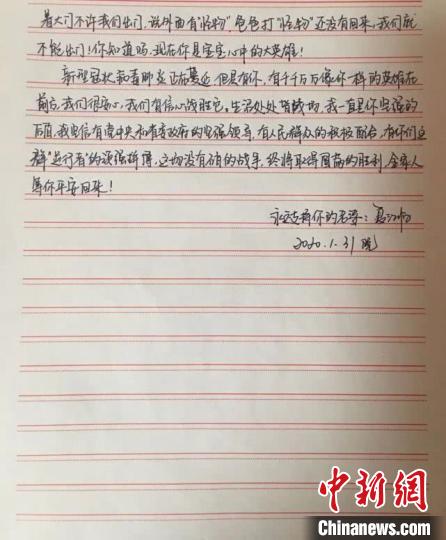 着大门不许我们出门，说外面有“怪物”，爸爸打“怪物”还没有回来，我们就
不能出门！你知道吗，现在你是宝宝心中的大英雄！
新型冠状病毒肺炎正在蔓延，但是有你，有千千万万像你一样的英雄在
前方，我们很安心，我们有信心战胜它，生活处处皆战场，我一直是你坚强的
后盾，我坚信有党中央和省委政府的坚强领导，有人民群众的积极配合，有你们这
群“逆行者”的顽强拼搏，这场没有硝烟的战争，终将取得圆满的胜利，全家人
等你平安回来！
永远支持你的老婆：
2020.1.31 晚
中新网
Chinanews.com